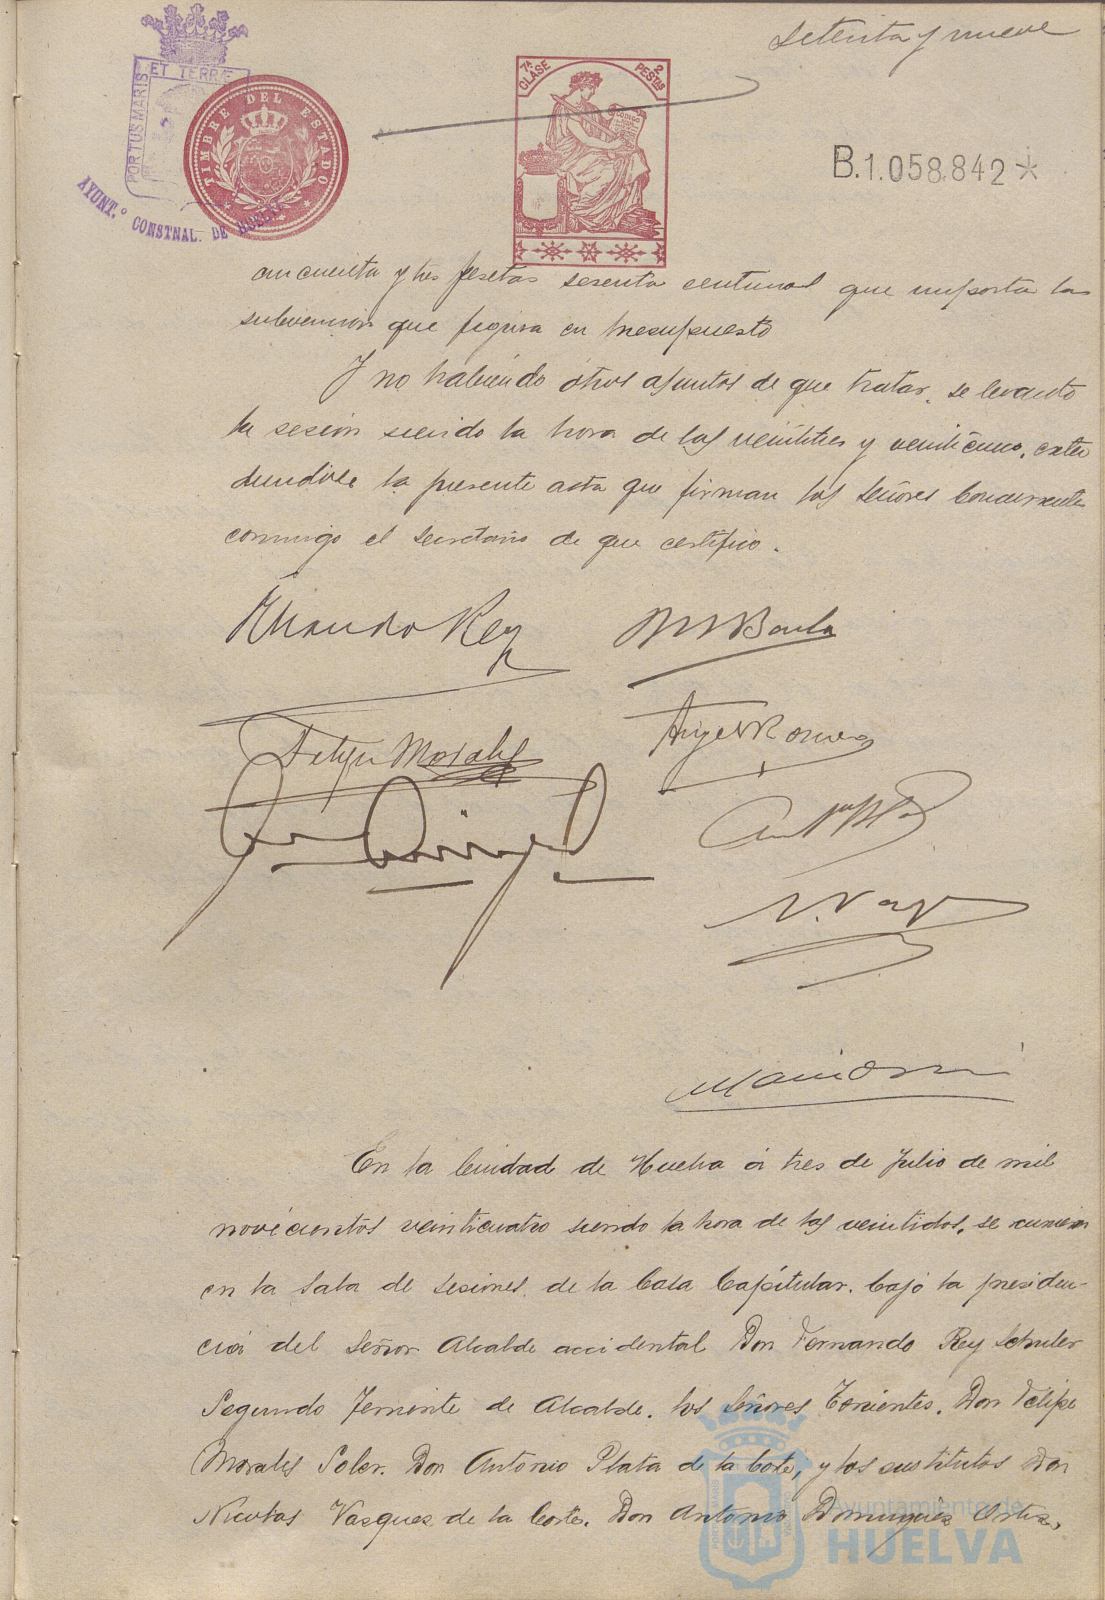 Setenta y nueve
PORTUS MARIS ET TERRÆ
AYUNT.º CONSTNAL. DE HUELVA
TIMBRE DEL ESTADO
7ª CLASE 2 PESTAS
CODIGO
B.1.058.842*
cincuenta y tres pesetas sesenta centimos que importa la
subvencion que figura en presupuesto
Y no habiendo otros asuntos de que tratar, se levantó
la sesión siendo la hora de las veintitres y veinticinco, exten
diendose la presente acta que firman los Señores Concurrentes
conmigo el Secretario de que certifico.
Fernando Rey
Felipe Morales
Angel Romero
En la Ciudad de Huelva á tres de Julio de mil
novecientos veinticuatro siendo la hora de las veintidos, se reunieron
en la Sala de Sesiones de la Casa Capitular, bajo la presiden-
cia del Señor Alcalde accidental Don Fernando Rey Schuler
Segundo Teniente de Alcalde, los Señores Tenientes, Don Felipe
Morales Soler, Don Antonio Plata de la Corte, y los sustitutos Don
Nicolas Vazquez de la Corte, Don Antonio Dominguez Ortiz,
Ayuntamiento de
HUELVA